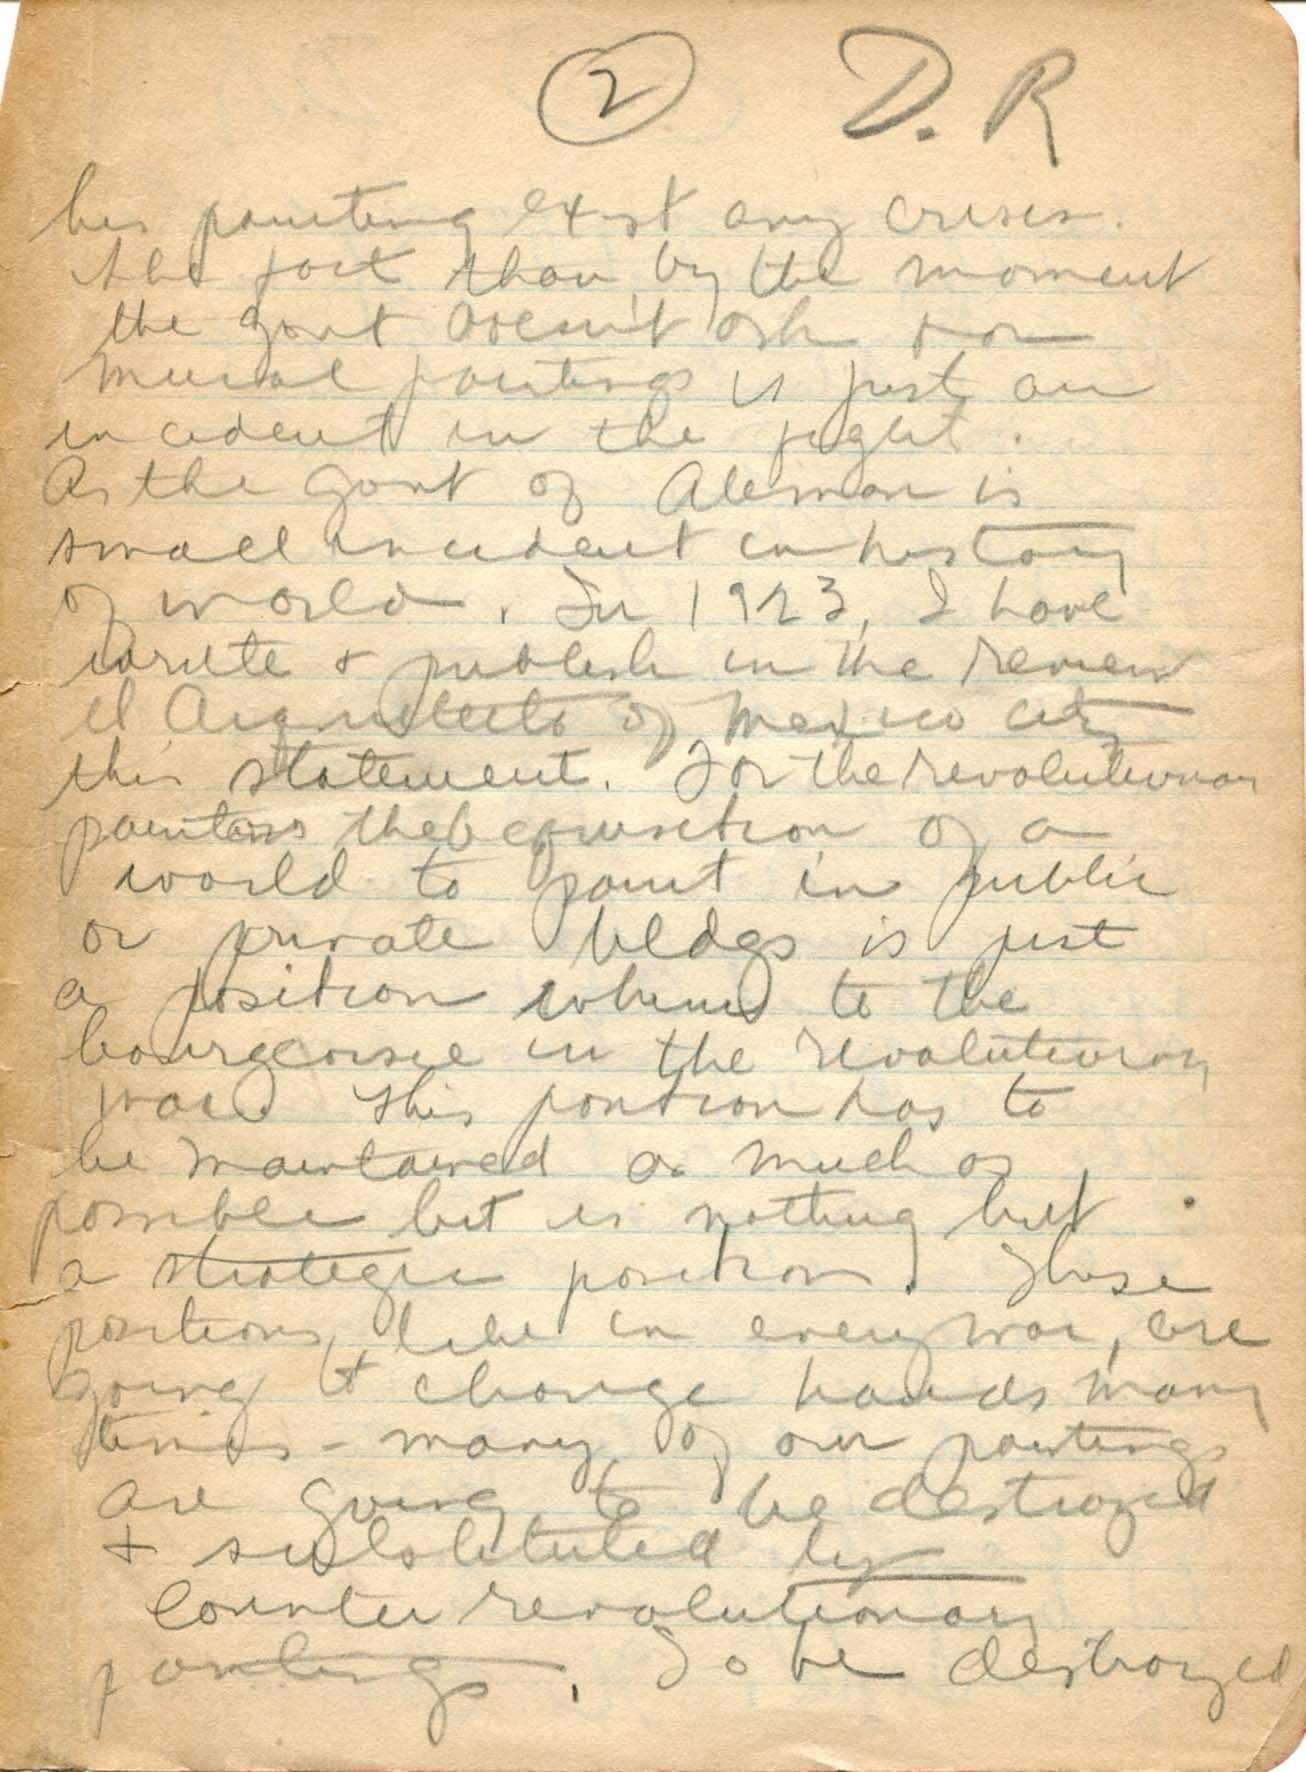 ② D. R
his painting exist any crisis.
the fact than by the moment
the govt doesn't ask for
mural paintings is just an
incident in the fight.
As the govt of Aleman is
small incident in history
of world. In 1923, I have
write & publish in the review
el Arquitecto of Mexico city
this statement. For the revolutionary
painters the of a
world to paint in public
or private bldgs is just
a position to the
bourgeoisie in the revolutionary
war. This position has to
be maintained as much as
possible but is nothing but
a strategic position. These
positions, like in every war, are
going to change hands many
times - many of our paintings
are going to be destroyed
& substituted by
counter revolutionary
paintings. To be destroyed